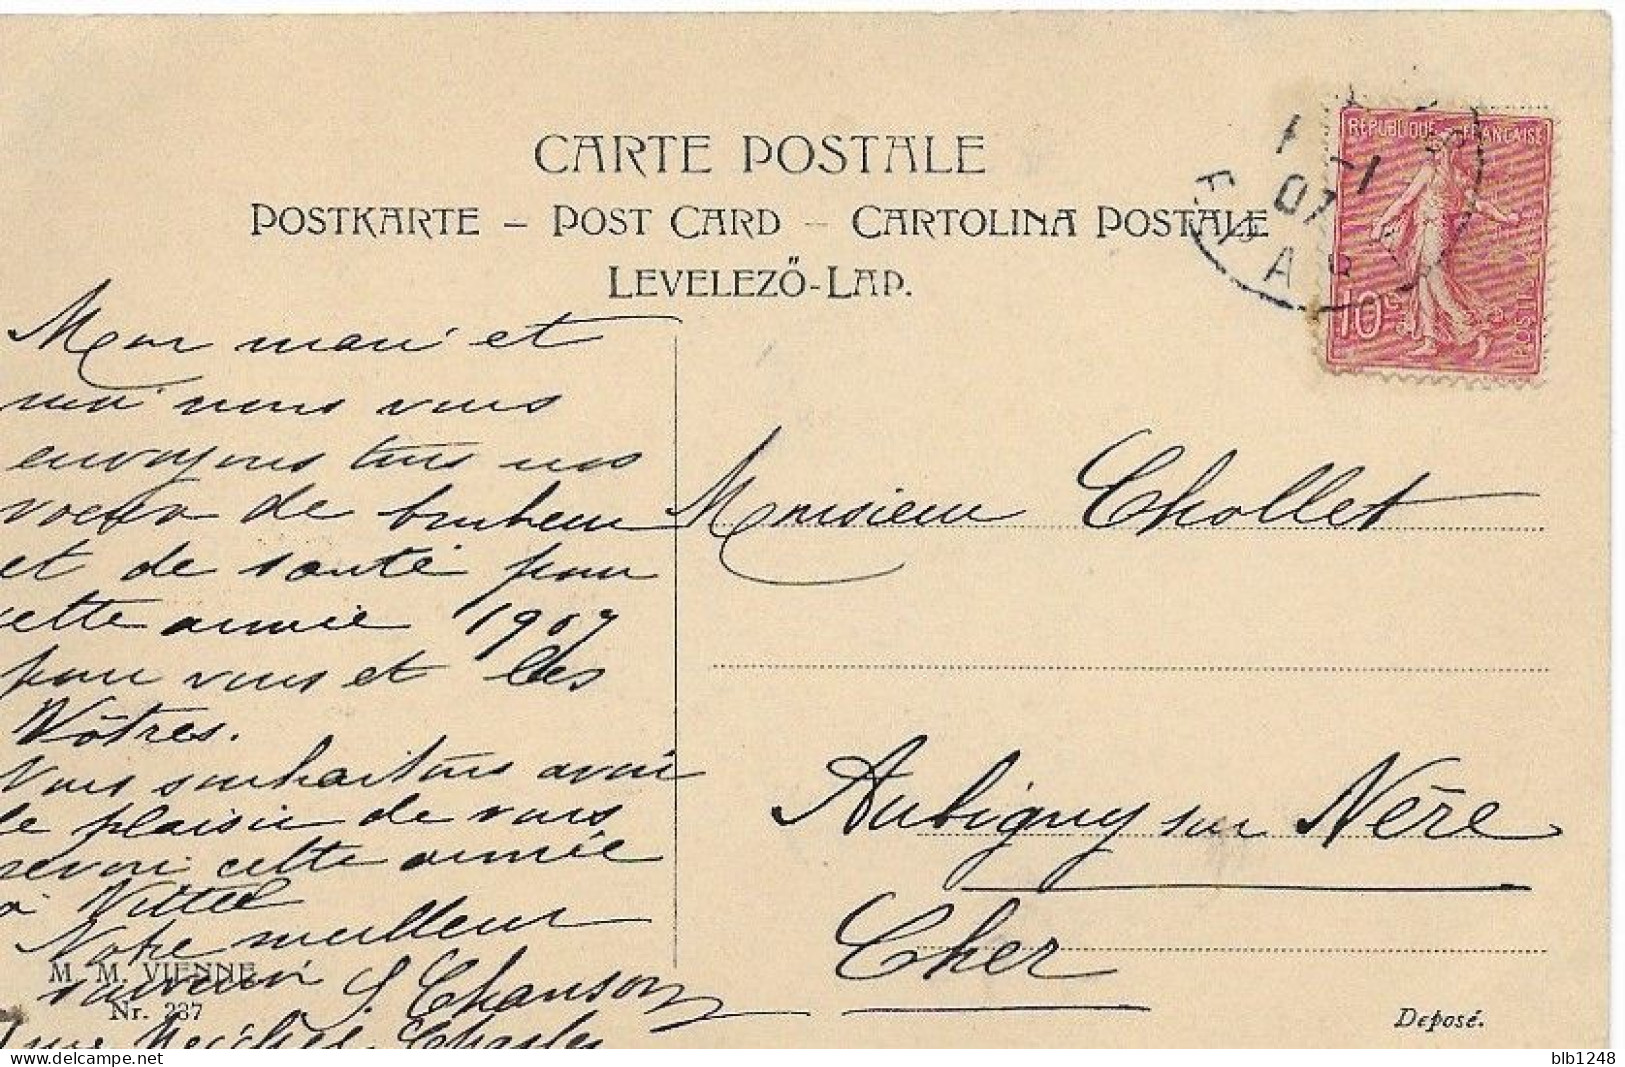 CARTE POSTALE
POSTKARTE – POST CARD – CARTOLINA POSTALE
LEVELEZŐ-LAP.
REPUBLIQUE FRANÇAISE
10c
POSTES
1 -1
07
PAR
Mon mari et
moi nous vous
envoyons tous nos
voeux de bonheur
et de santé pour
cette année 1907
pour vous et les
Vôtres.
Nous souhaitons avoir
le plaisir de vous
revoir cette année
à Vittel
Notre meilleur
souvenir S. Chanson
Monsieur Chollet
Aubigny sur Nère
Cher
M. M. VIENNE
Nr. 237
Deposé.
delcampe.net
blb1248